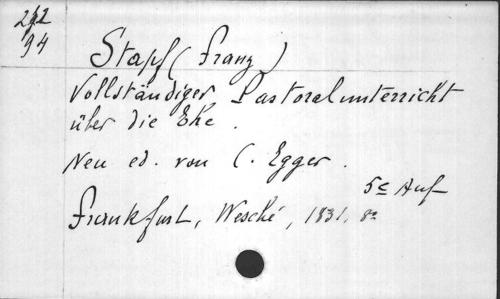 242
94
Stapf (Franz)
Vollständiger Pastoralunterricht
über die Ehe.
Neu ed. von C. Egger.
5e Auf
Frankfurt, Wesché, 1831, 8o